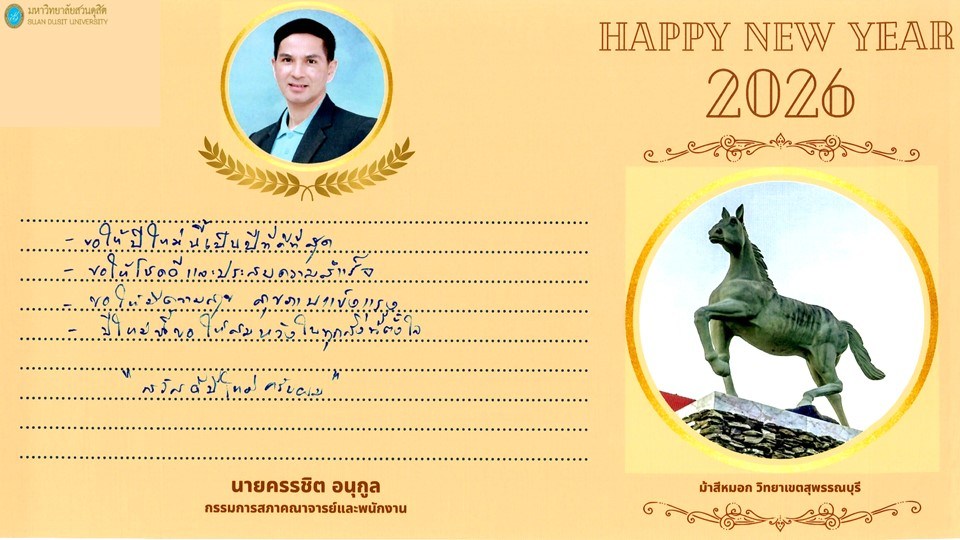 มหาวิทยาลัยสวนดุสิต
SUAN DUSIT UNIVERSITY
HAPPY NEW YEAR
2026
- ขอให้ปีใหม่นี้เป็นปีที่ดีที่สุด
- ขอให้โชคดีและประสบความสำเร็จ
- ขอให้มีความสุข สุขภาพแข็งแรง
- ปีใหม่นี้ขอให้สมหวังในทุกสิ่งที่ตั้งใจ
"สวัสดีปีใหม่ครับผม"
นายครรชิต อนุกูล
กรรมการสภาคณาจารย์และพนักงาน
ม้าสีหมอก วิทยาเขตสุพรรณบุรี